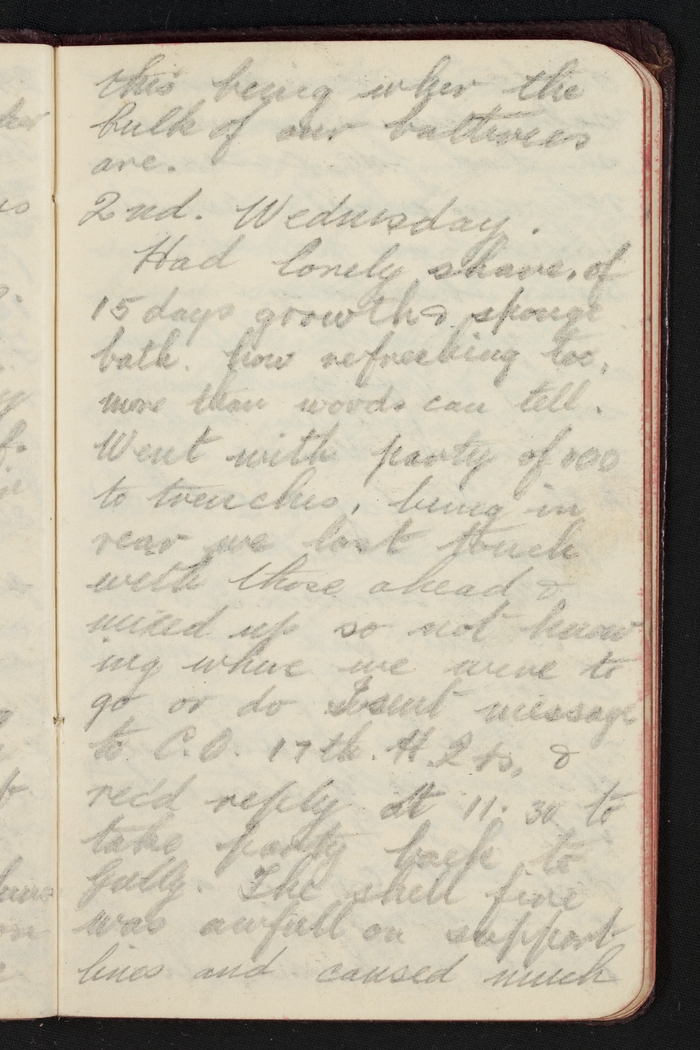 this being wher the
bulk of our batteries
are.
2nd. Wednesday.
Had lonely shave, of
15 days growth & sponge
bath. how refreshing too,
more than words can tell.
Went with party of 100
to trenches, being in
rear we lost touch
with those ahead &
mixed up so not know
ing where we were to
go or do I sent message
to C.O. 17th. H.Qts, &
rec'd reply at 11.30 to
take party back to
Gully. The shell fire
was awfull on support
lines and caused much